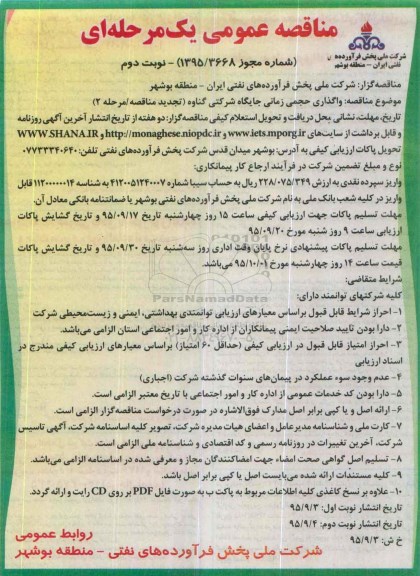 مناقصه عمومی یک‌مرحله‌ای
شرکت ملی پخش فرآورده‌های
نفتی ایران - منطقه بوشهر
(شماره مجوز ۱۳۹۵/۳۶۶۸) - نوبت دوم
مناقصه‌گزار: شرکت ملی پخش فرآورده‌های نفتی ایران - منطقه بوشهر
موضوع مناقصه: واگذاری حجمی زمانی جایگاه شرکتی گناوه (تجدید مناقصه/مرحله ۲)
تاریخ، مهلت، نشانی محل دریافت و تحویل استعلام کیفی مناقصه‌گزار: دو هفته از تاریخ انتشار آخرین آگهی روزنامه
و قابل برداشت از سایت‌های www.iets.mporg.ir و http://monaghese.niopdc.ir و WWW.SHANA.IR
تحویل پاکات ارزیابی کیفی به آدرس: بوشهر میدان قدس شرکت پخش فرآورده‌های نفتی تلفن: ۰۷۷۳۳۳۴۰۶۴۰
نوع و مبلغ تضمین شرکت در فرآیند ارجاع کار پیمانکاری:
واریز سپرده نقدی به ارزش ۲۲۸/۰۷۵/۳۴۹ ریال به حساب سیبا شماره ۴۱۲۰۰۵۱۲۴۰۰۰۷ به شناسه ۱۱۲۰۰۰۰۰۰۱۴ قابل
واریز در کلیه شعب بانک ملی به نام شرکت ملی پخش فرآورده‌های نفتی بوشهر یا ضمانتنامه بانکی معادل آن.
مهلت تسلیم پاکات جهت ارزیابی کیفی ساعت ۱۵ روز چهارشنبه تاریخ ۹۵/۰۹/۱۷ و تاریخ گشایش پاکات
ارزیابی ساعت ۹ روز شنبه مورخ ۹۵/۰۹/۲۰
مهلت تسلیم پاکات پیشنهادی نرخ پایان وقت اداری روز سه‌شنبه تاریخ ۹۵/۰۹/۳۰ و تاریخ گشایش پاکات
قیمت ساعت ۱۴ روز چهارشنبه مورخ ۹۵/۱۰/۰۱ می‌باشد.
شرایط متقاضی:
کلیه شرکتهای توانمند دارای:
۱- احراز شرایط قابل قبول براساس معیارهای ارزیابی توانمندی بهداشتی، ایمنی و زیست‌محیطی شرکت
۲- دارا بودن تایید صلاحیت ایمنی پیمانکاران از اداره کار و امور اجتماعی استان الزامی می‌باشد.
۳- احراز امتیاز قابل قبول در ارزیابی کیفی (حداقل ۶۰ امتیاز) براساس معیارهای ارزیابی کیفی مندرج در
اسناد ارزیابی
۴- عدم وجود سوء عملکرد در پیمان‌های سنوات گذشته شرکت (اجباری)
۵- دارا بودن کد خدمات عمومی از اداره کار و امور اجتماعی با تاریخ معتبر الزامی است.
۶- ارائه اصل و یا کپی برابر اصل مدارک فوق‌الاشاره در صورت درخواست مناقصه‌گزار الزامی است.
۷- کارت ملی و شناسنامه مدیرعامل و اعضای هیات مدیره شرکت، تصویر کلیه اساسنامه شرکت، آگهی تاسیس
شرکت، آخرین تغییرات در روزنامه رسمی و کد اقتصادی و شناسنامه ملی الزامی است.
۸- تسلیم اصل گواهی صحت امضاء جهت امضاکنندگان مجاز و معرفی شده در اساسنامه الزامی می‌باشد.
۹- کلیه مستندات ارائه شده می‌بایست اصل یا کپی برابر اصل باشد.
۱۰- علاوه بر نسخ کاغذی کلیه اطلاعات مربوط به پاکت ب به صورت فایل PDF بر روی CD رایت و ارائه گردد.
تاریخ انتشار نوبت اول: ۹۵/۹/۳
تاریخ انتشار نوبت دوم: ۹۵/۹/۴
خ ش: ۹۵/۹/۳
روابط عمومی
شرکت ملی پخش فرآورده‌های نفتی - منطقه بوشهر
ParsNamadData